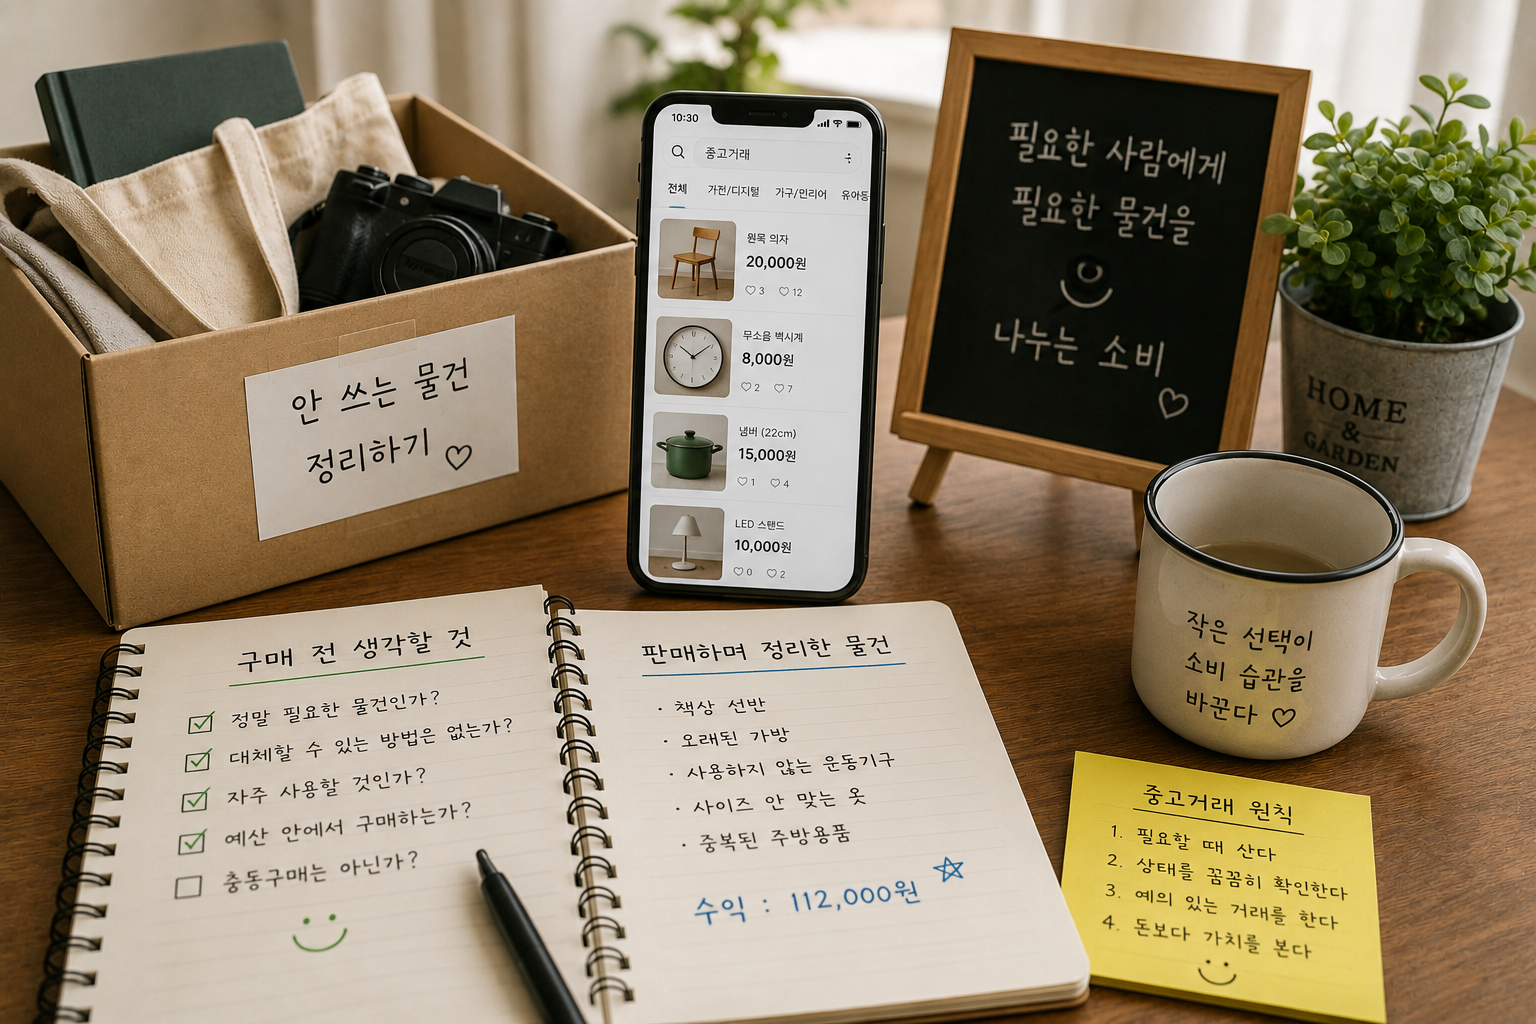 안 쓰는 물건
정리하기 ♡
10:30
중고거래
전체 가전/디지털 가구/인리어 유아동
원목 의자
20,000원
♡ 3 ♡ 12
무소음 벽시계
8,000원
♡ 2 ♡ 7
냄버 (22cm)
15,000원
♡ 1 ♡ 4
LED 스탠드
10,000원
♡ 0 ♡ 2
필요한 사람에게
필요한 물건을
나누는 소비
♡
HOME
&
GARDEN
작은 선택이
소비 습관을
바꾼다 ♡
구매 전 생각할 것
☑ 정말 필요한 물건인가?
☑ 대체할 수 있는 방법은 없는가?
☑ 자주 사용할 것인가?
☑ 예산 안에서 구매하는가?
☐ 충동구매는 아닌가?
판매하며 정리한 물건
· 책상 선반
· 오래된 가방
· 사용하지 않는 운동기구
· 사이즈 안 맞는 옷
· 중복된 주방용품
수익 : 112,000원 ☆
중고거래 원칙
1. 필요할 때 산다
2. 상태를 꼼꼼히 확인한다
3. 예의 있는 거래를 한다
4. 돈보다 가치를 본다